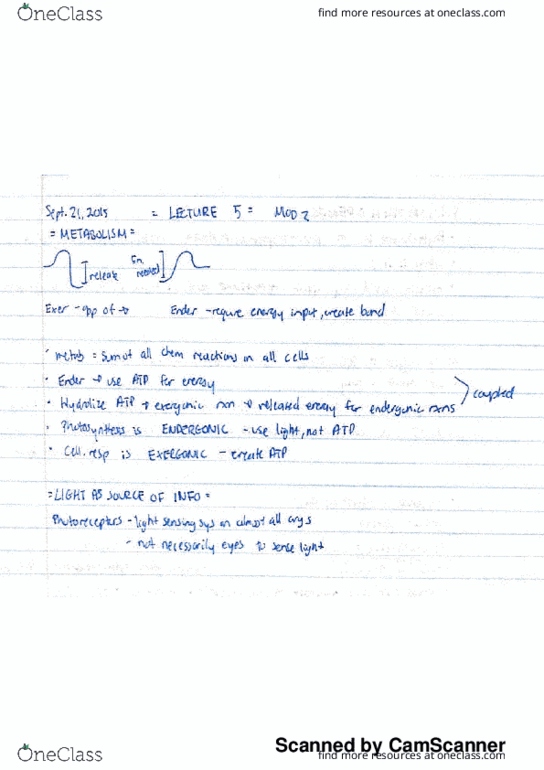 OneClass
find more resources at oneclass.com
Sept. 21, 2015 = LECTURE 5 = MOD 2
= METABOLISM =
release
En. needed
Exer - opp of → Ender - require energy input, create bond
· metab = sum of all chem reactions in all cells
· Ender → use ATP for energy
· Hydrolize ATP → exergonic rxn → released energy for endergonic rxns
coupled
· Photosynthesis is ENDERGONIC - use light, not ATP
· Cell. resp is EXERGONIC - create ATP
= LIGHT AS SOURCE OF INFO =
Photoreceptors - light sensing sys in almost all orgs
- not necessarily eyes to sense light
Scanned by CamScanner
OneClass
find more resources at oneclass.com